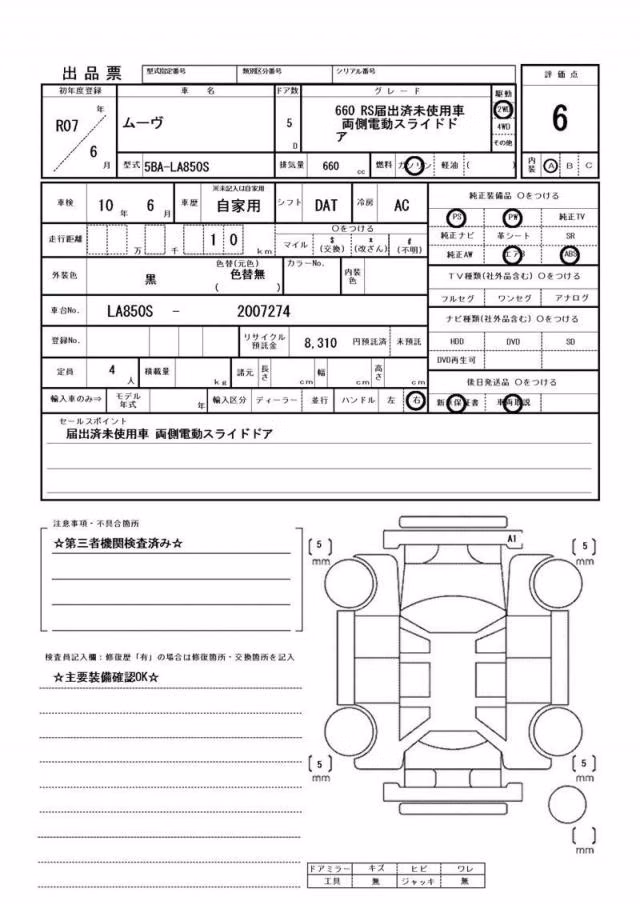 出品票 型式指定番号 類別区分番号 シリアル番号 評価点
初年度登録 車名 ドア数 グレード 駆動
R07 年 6 月 ムーヴ 5 D 660 RS届出済未使用車 両側電動スライドドア 2WD 4WD その他 6
型式 5BA-LA850S 排気量 660 cc 燃料 ガソリン 軽油 ( ) 内装 A B C
車検 10 年 6 月 車歴 ※未記入は自家用 自家用 シフト DAT 冷房 AC 純正装備品 ○をつける
PS PW 純正TV
走行距離 万 千 1 0 km ○をつける マイル $ (交換) x (改ざん) # (不明) 純正ナビ 革シート SR
純正AW エアB ABS
外装色 黒 色替(元色) 色替無 ( ) カラーNo. 内装色 TV種類(社外品含む) ○をつける
フルセグ ワンセグ アナログ
車台No. LA850S - 2007274 ナビ種類(社外品含む) ○をつける
登録No. リサイクル預託金 8,310 円預託済 未預託 HDD DVD SD
DVD再生可
定員 4 人 積載量 kg 諸元 長さ cm 幅 cm 高さ cm 後日発送品 ○をつける
輸入車のみ⇒ モデル年式 年 輸入区分 ディーラー 並行 ハンドル 左 右 新車保証書 車両取説
セールスポイント
届出済未使用車 両側電動スライドドア
注意事項・不具合箇所
☆第三者機関検査済み☆
検査員記入欄：修復歴「有」の場合は修復箇所・交換箇所を記入
☆主要装備確認OK☆
[ 5 ] mm A1 [ 5 ] mm
[ 5 ] mm [ 5 ] mm
[ ] mm
ドアミラー キズ ヒビ ワレ
工具 無 ジャッキ 無